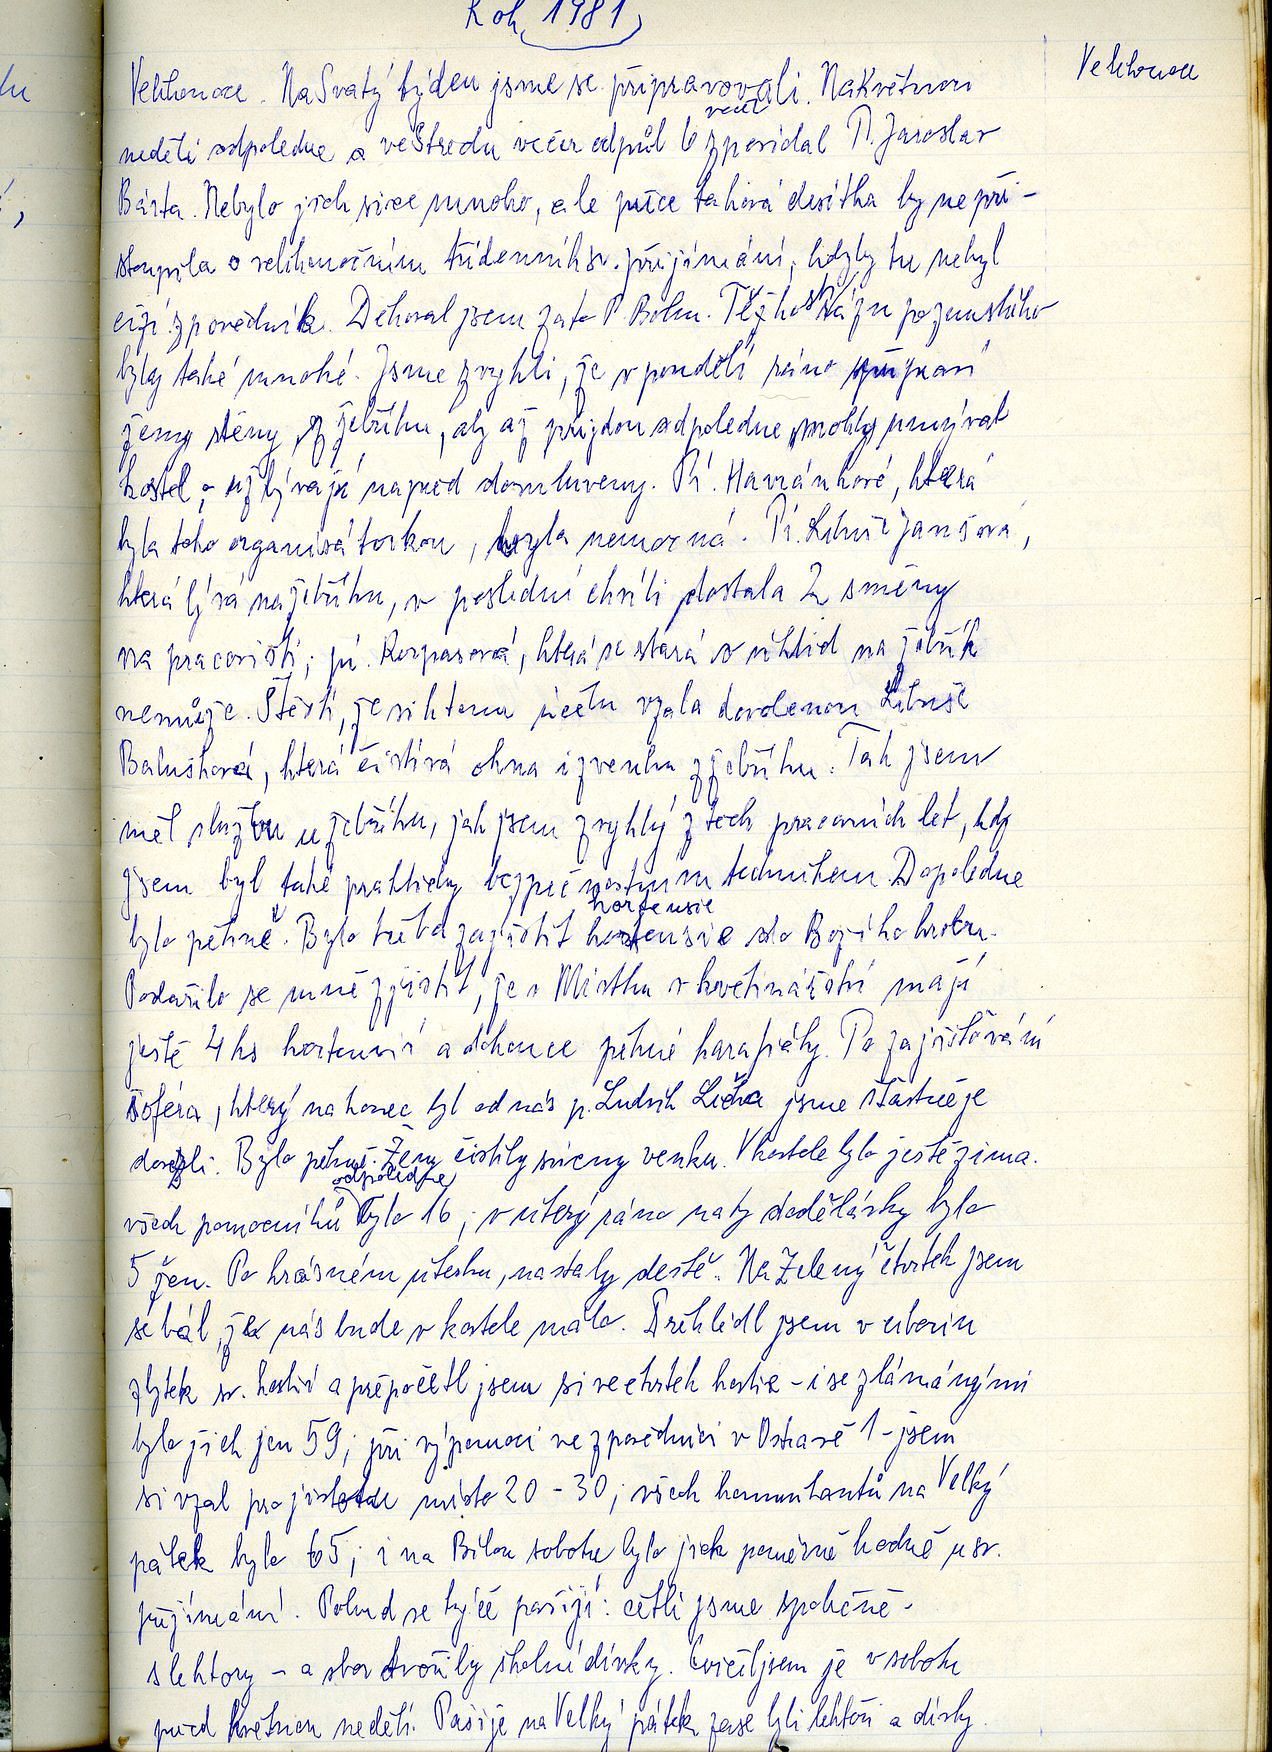 Rok 1981
Velikonoce
Velikonoce. Na Svatý týden jsme se připravovali. Na Květnou
neděli odpoledne a ve Středu večer od půl 6 večer zpovídal P. Jaroslav
Bárta. Nebylo jich sice mnoho, ale přece taková desítka by nepři-
stoupila o velikonočním třídenní k sv. přijímání, kdyby tu nebyl
cizí zpovědník. Děkoval jsem za to P. Bohu. Těžkosti rázu pozemského
byly také mnohé. Jsme zvyklí, že v pondělí ráno
ženy stěny z žebříku, aby až přijdou odpoledne, mohly umývat
kostel a už bývají napřed domluveny. Pí. Havránková, která
byla toho organisátorkou, byla nemocná. Pí. Libuše Janšová,
která bývá na žebříku, v poslední chvíli dostala 2 směny
na pracovišti; pí. Korpasová, která se stará o úklid na žebřík
nemůže. Štěstí, že si k tomu účelu vzala dovolenou Libuše
Baluśková, která čistívá okna i zvenku z žebříku. Tak jsem
měl službu u žebříku, jak jsem zvyklý z těch pracovních let, kdy
jsem byl také prakticky bezpečnostním technikem. Dopoledne
bylo pěkně. Bylo třeba zajistit hortensie do Božího hrobu.
Podařilo se mně zjistit, že v Místku v květinářství mají
ještě 4 ks hortensií a dokonce pěkné karafiáty. Po zajišťování
šoféra, který nakonec byl od nás p. Ludvík Lička jsme šťastně je
dovezli. Bylo pěkně. Ženy čistily svícny venku. V kostele bylo ještě zima.
všech pomocníků odpoledne bylo 16; v úterý ráno na ty dodělávky bylo
5 žen. Po krásném úterku, nastaly deště. Na Zelený čtvrtek jsem
se bál, že nás bude v kostele málo. Prohlédl jsem v ciboriu
zbytek sv. hostií a přepočetl jsem si ve čtvrtek hostie – i se zlámanými
bylo jich jen 59; při výpomoci ve zpovědnici v Ostravě 1 – jsem
si vzal pro jistotu místo 20 – 30; všech komunikantů na Velký
pátek bylo 65; i na Bílou sobotu bylo jich poměrně hodně u sv.
přijímání. Pokud se týče pašijí: četli jsme společně –
s lektory – a sbor tvořily školní dívky. Cvičil jsem je v sobotu
před Květnou nedělí. Pašije na Velký pátek zase byli lektoři a dívky.